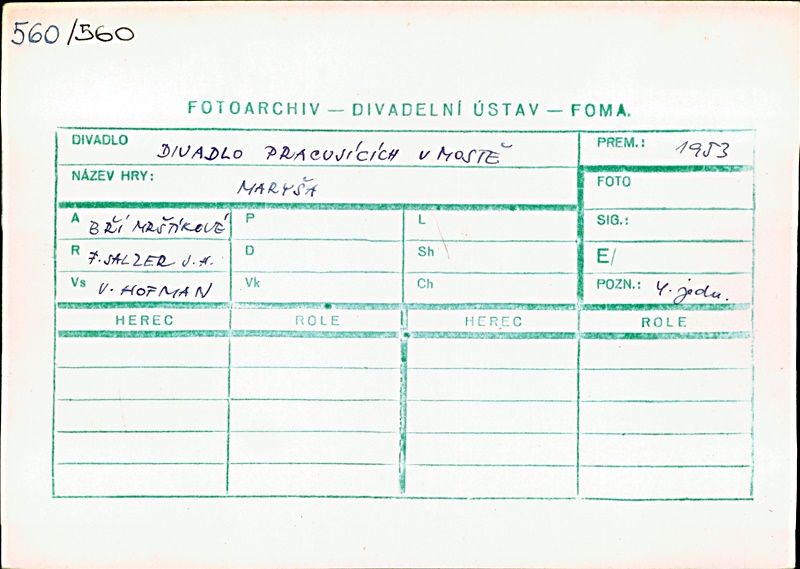 560/560
FOTOARCHIV — DIVADELNÍ ÚSTAV — FOMA.
DIVADLO DIVADLO PRACUJÍCÍCH V MOSTĚ
PREM.: 1953
NÁZEV HRY: MARYŠA
FOTO
A BŘÍ MRŠTÍKOVÉ P L SIG.:
R F. SALZER J.H. D Sh E/
Vs V. HOFMAN Vk Ch POZN.: 4. jedn.
HEREC ROLE HEREC ROLE